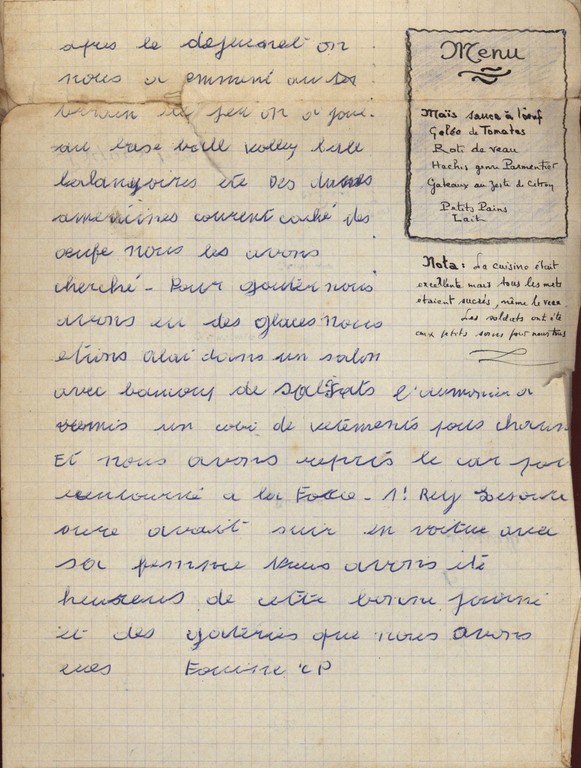 apres le dejeunet on
nous a emmené au te
terrain de jeu on a joué
au base ball volley ball
balançoires ete Des dames
americines avaient caché des
œufs nous les avons
cherché - Pour gouter nous
avons eu des glaces nous
etions dans un salon
avec baucoup de Soldats l'aumonier a
remis un colis de vetements pous chacun
Et nous avons repris le car pour
a la - Mr Rey
avait suivi en voiture avec
sa femme Nous avons été
heureus de cette bonne journé
et des gateries que nous avons
eues Equipe CP
Menu
Maïs sauce à l'œuf
Gelée de Tomates
Roti de veau
Hachis genre Parmentier
Gateaux au Zeste de Citron
Petits Pains
Lait
Nota : La cuisine était
excellente mais tous les mets
étaient sucrés, même le veau.
Les soldats ont été
aux petits soins pour nous tous